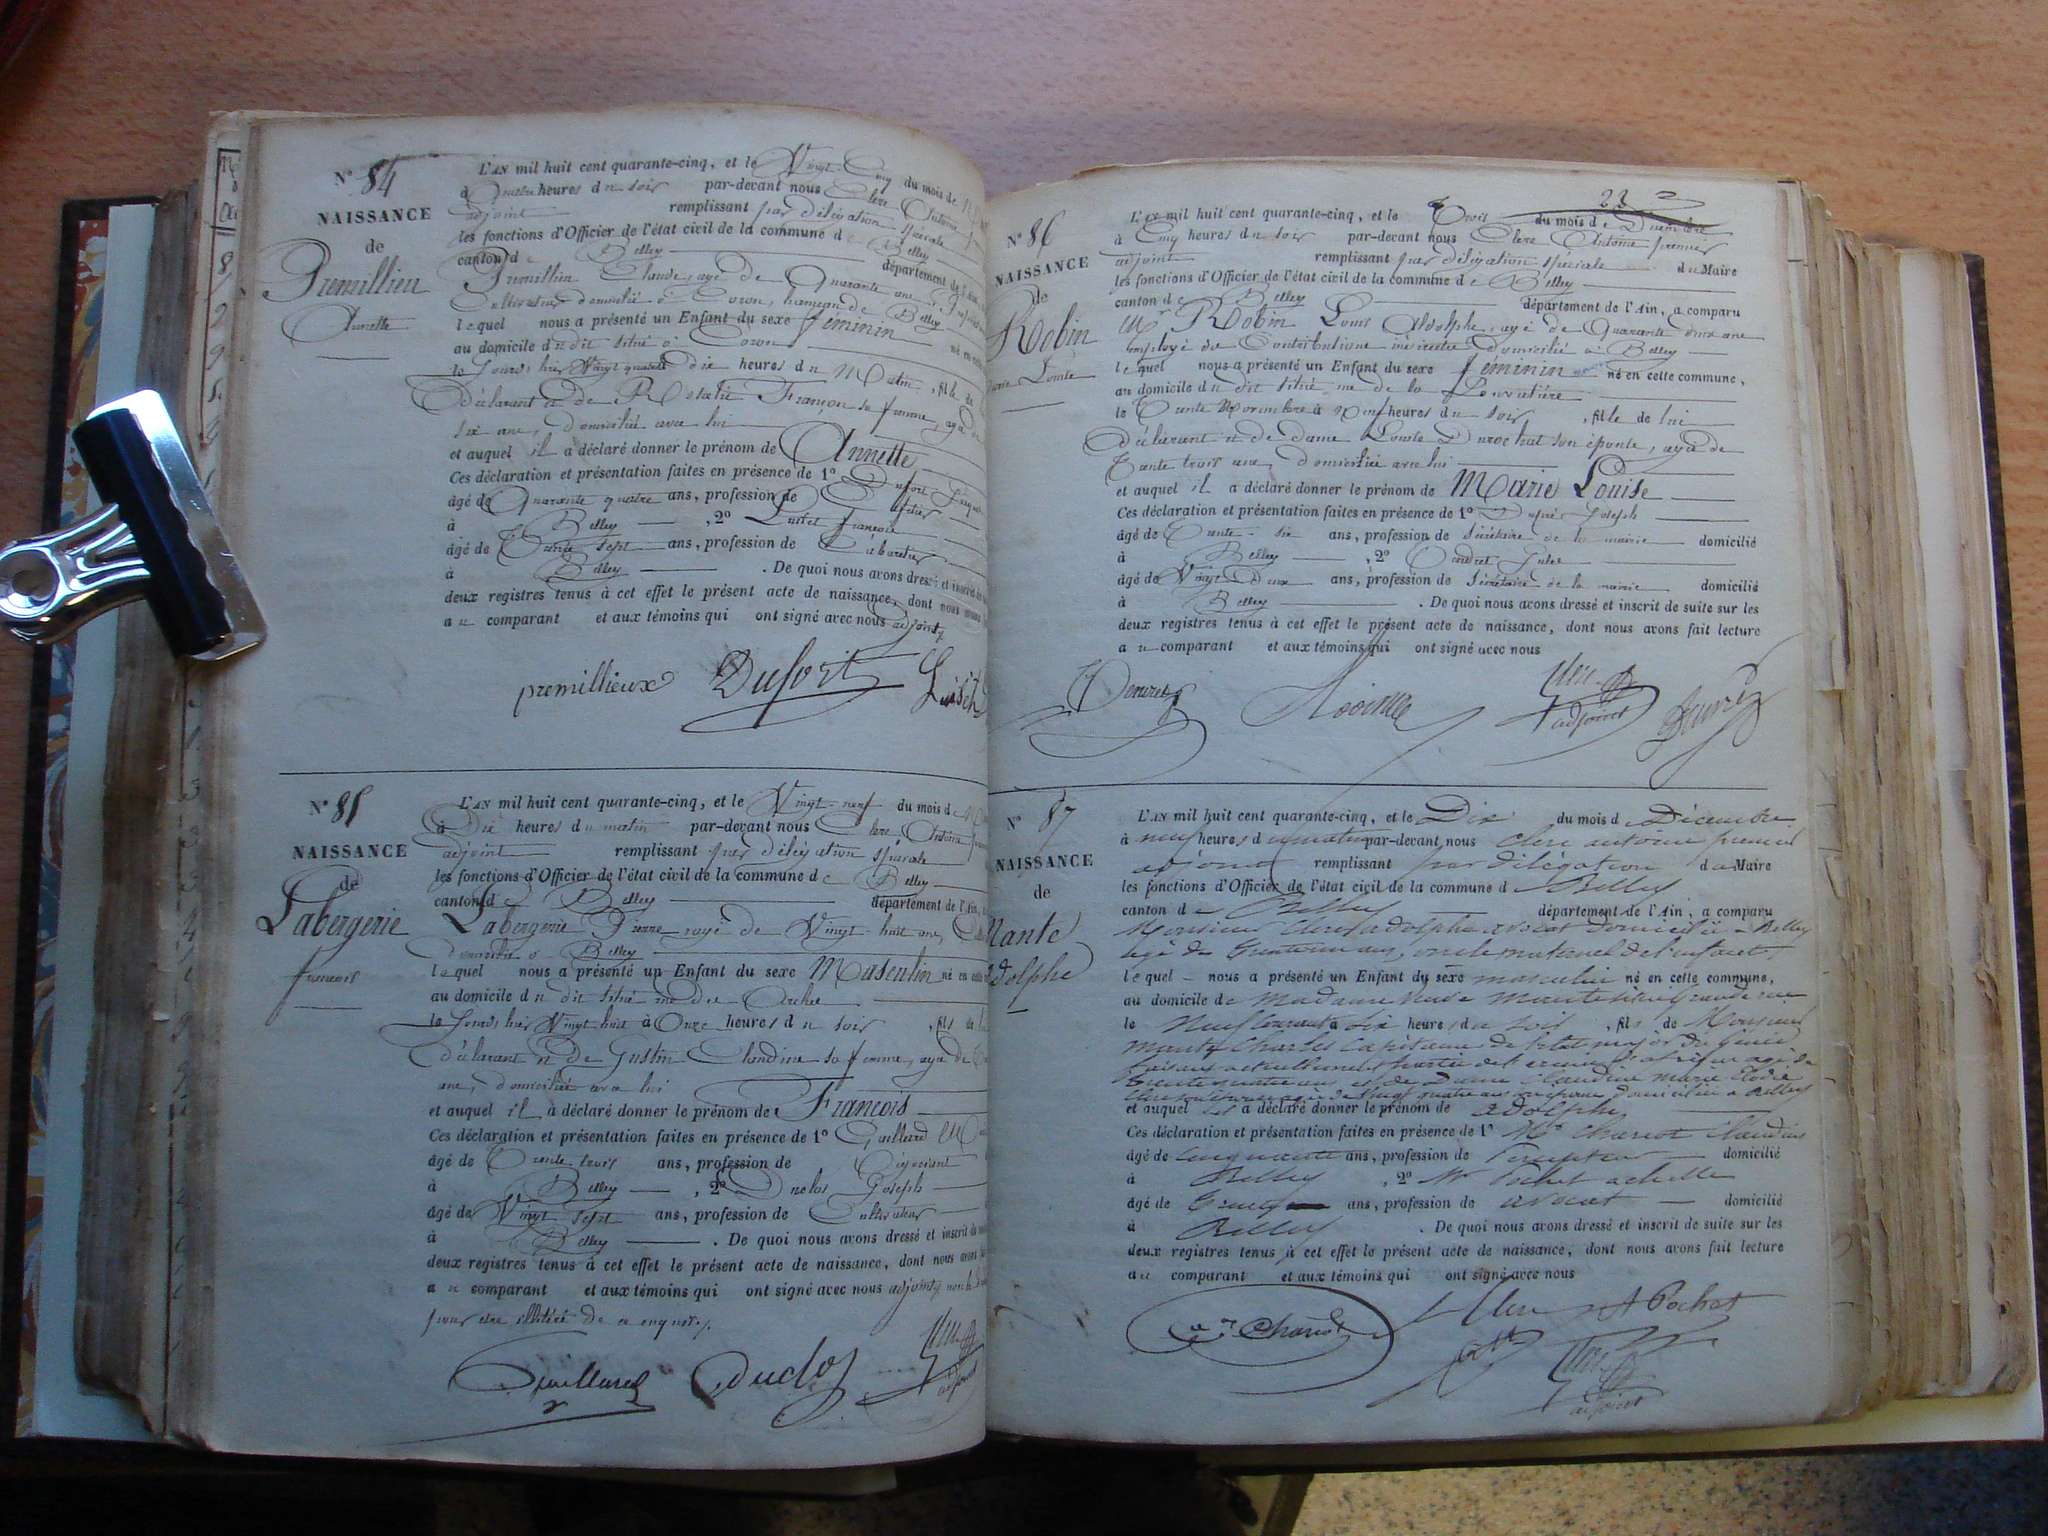 N° 84
NAISSANCE
de
Premillieu
Annette
L'AN mil huit cent quarante-cinq, et le Vingt Cinq du mois de
à heures du soir par-devant nous Clerc Antoine
adjoint remplissant par délégation spéciale
les fonctions d'Officier de l'état civil de la commune de Belley
canton de Belley département de l'Ain
Premillieu Claude, agé de Quarante ans
Cultivateur domicilié à Coron, hameau de Belley
lequel nous a présenté un Enfant du sexe féminin né en
au domicile du dit situé à Coron
le Jourd'hier Vingt quatre à dix heures du Matin, fille de
déclarant et de Rosalie Françon sa femme, agée de
six ans, domiciliée avec lui
et auquel il a déclaré donner le prénom de Annette
Ces déclaration et présentation faites en présence de 1° Dufort
âgé de Quarante quatre ans, profession de
à Belley, 2° Luiset françois
âgé de Trente sept ans, profession de Cabaretier
à Belley. De quoi nous avons dressé et inscrit de
deux registres tenus à cet effet le présent acte de naissance, dont nous avons
au comparant et aux témoins qui ont signé avec nous adjoint
premillieux Dufort Luiset
N° 85
NAISSANCE
de
Labergerie
françois
L'AN mil huit cent quarante-cinq, et le Vingt-neuf du mois de
à Dix heures du matin par-devant nous Clerc Antoine
adjoint remplissant par délégation spéciale
les fonctions d'Officier de l'état civil de la commune de Belley
canton de Belley département de l'Ain,
Labergerie Pierre, agé de Vingt-huit ans,
domicilié à Belley
lequel nous a présenté un Enfant du sexe Masculin né en cette
au domicile du dit situé rue des
le Jourd'hier Vingt huit à Onze heures du soir, fils de
déclarant et de Gustin Claudine sa femme, agée de
ans, domiciliée avec lui
et auquel il a déclaré donner le prénom de François
Ces déclaration et présentation faites en présence de 1° Guillard
âgé de Trente-trois ans, profession de
à Belley, 2° Duclos Joseph
âgé de Vingt sept ans, profession de Cultivateur
à Belley. De quoi nous avons dressé et inscrit de
deux registres tenus à cet effet le présent acte de naissance, dont nous avons
au comparant et aux témoins qui ont signé avec nous adjoint, non le
pour être illitéré de ce enquis
Guillard Duclos Clerc
adjoint
22
N° 86
NAISSANCE
de
Robin
Marie Louise
L'AN mil huit cent quarante-cinq, et le Trois du mois de Décembre
à Cinq heures du soir par-devant nous Clerc Antoine premier
adjoint remplissant par délégation spéciale du Maire
les fonctions d'Officier de l'état civil de la commune de Belley
canton de Belley département de l'Ain, a comparu
Mr Robin Louis Adolphe, agé de Quarante deux ans
employé des Contributions indirectes domicilié à Belley
lequel nous a présenté un Enfant du sexe féminin né en cette commune,
au domicile du dit situé rue de la
le Trente Novembre à Neuf heures du soir, fille de lui
déclarant et de dame Louise Durochat son épouse, agée de
Trente trois ans, domiciliée avec lui
et auquel il a déclaré donner le prénom de Marie Louise
Ces déclaration et présentation faites en présence de 1° Joseph
âgé de Trente-six ans, profession de Secrétaire de la mairie domicilié
à Belley, 2° Jules
âgé de Vingt-Deux ans, profession de Secrétaire de la mairie domicilié
à Belley. De quoi nous avons dressé et inscrit de suite sur les
deux registres tenus à cet effet le présent acte de naissance, dont nous avons fait lecture
au comparant et aux témoins qui ont signé avec nous
Clerc
adjoint
N° 87
NAISSANCE
de
Mante
Adolphe
L'AN mil huit cent quarante-cinq, et le Dix du mois de Décembre
à neuf heures du matin par-devant nous Clerc antoine premier
adjoint remplissant par délégation du Maire
les fonctions d'Officier de l'état civil de la commune d Belley
canton de Belley département de l'Ain, a comparu
Monsieur Clerc adolphe avocat domicilié à Belley
agé de trente ans, oncle maternel de l'enfant,
lequel nous a présenté un Enfant du sexe masculin né en cette commune,
au domicile de Madame Veuve Mante grande rue
le Neuf courant à dix heures du soir, fils de Monsieur
Mante Charles Capitaine de l'état major du Génie
faisant actuellement partie de l'armée d'afrique agé de
trente quatre ans et de Dame Claudine Marie Elodie
Clerc son épouse agée de vingt quatre ans domiciliée à Belley
et auquel il a déclaré donner le prénom de adolphe
Ces déclaration et présentation faites en présence de 1° Mr Chariot Claudius
âgé de cinquante ans, profession de Percepteur domicilié
à Belley, 2° Mr Pochet achille
âgé de trente ans, profession de avocat domicilié
à Belley. De quoi nous avons dressé et inscrit de suite sur les
deux registres tenus à cet effet le présent acte de naissance, dont nous avons fait lecture
au comparant et aux témoins qui ont signé avec nous
Chariot Clerc A Pochet
Clerc
adjoint